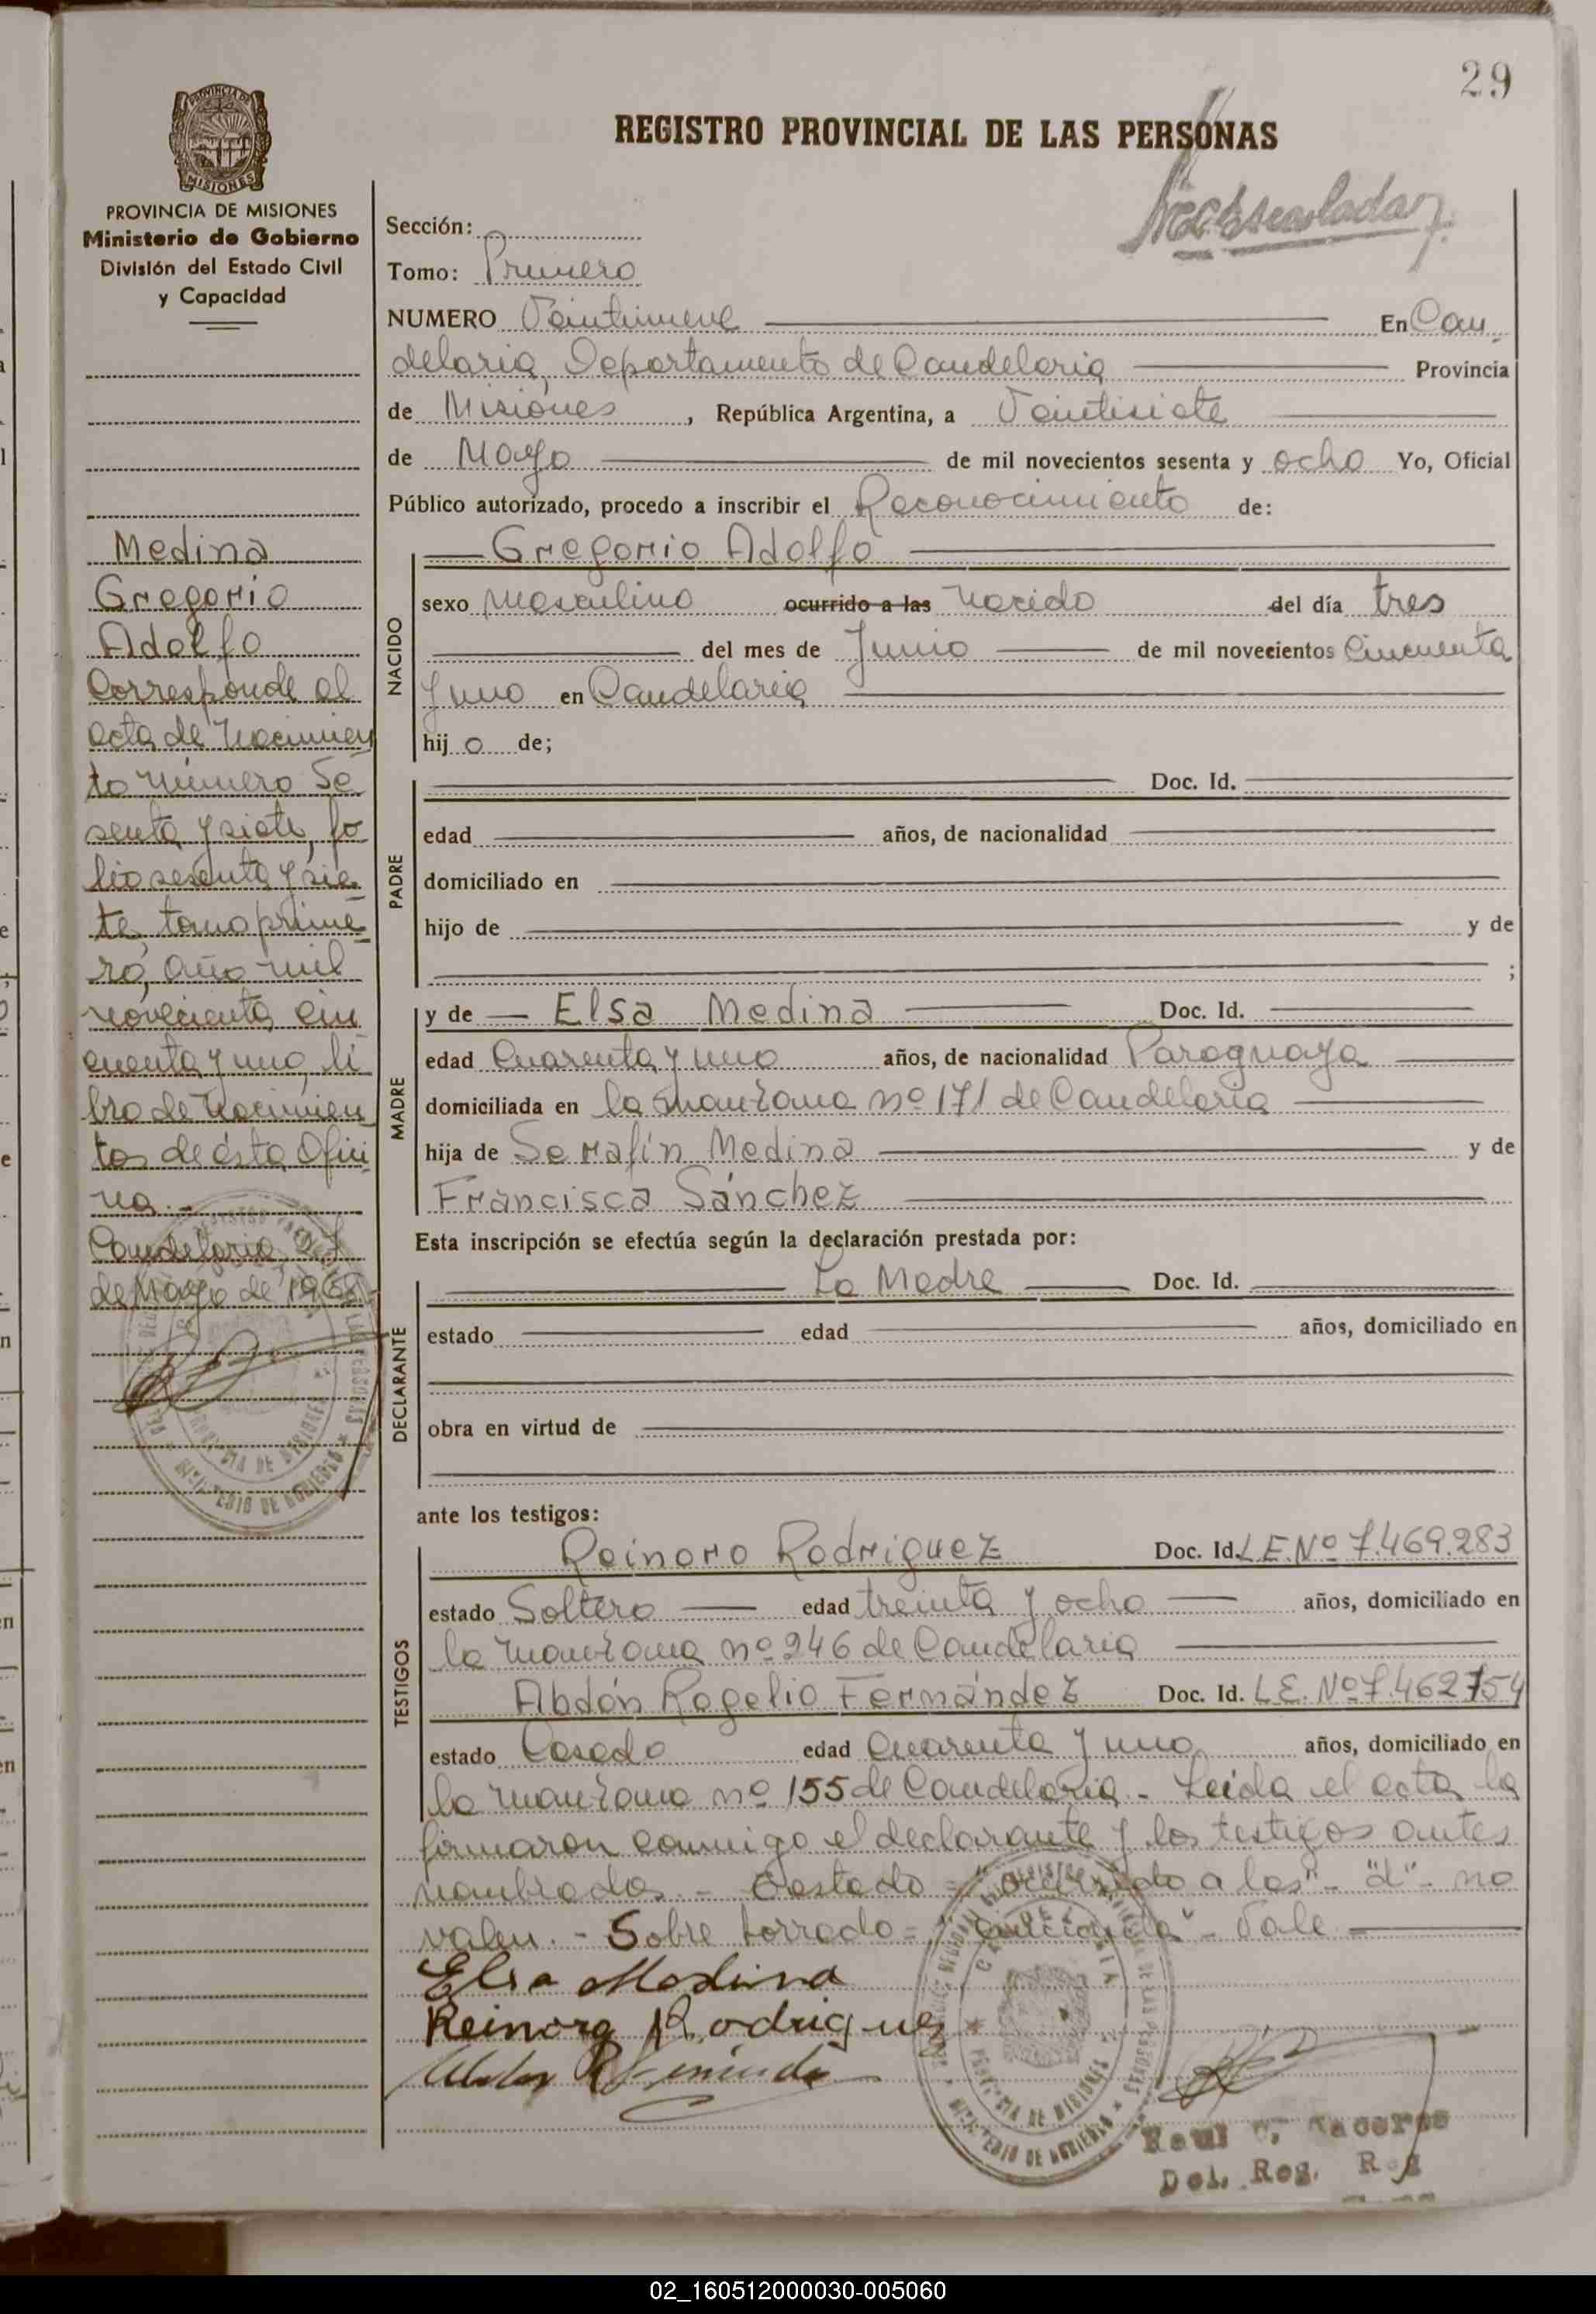 29
REGISTRO PROVINCIAL DE LAS PERSONAS
PROVINCIA DE MISIONES
Ministerio de Gobierno
División del Estado Civil
y Capacidad
Medina
Gregorio
Adolfo
Corresponde al
acta de Nacimien
to número Se
senta y siete, fo
lio sesenta y sie
te, tomo prime
ro, año mil
novecientos cin
cuenta y uno, li
bro de Nacimien
tos de ésta Ofici
na.-
Candelaria
de Mayo de 1968
Sección:
Tomo: Primero
NUMERO Veintinueve En Can
delaria, Departamento de Candelaria Provincia
de Misiones, República Argentina, a Veintisiete
de Mayo de mil novecientos sesenta y ocho Yo, Oficial
Público autorizado, procedo a inscribir el Reconocimiento de:
NACIDO
Gregorio Adolfo
sexo Masculino ocurrido a las Nacido del día tres
del mes de Junio de mil novecientos Cincuenta
y uno en Candelaria
hij o de;
PADRE
Doc. Id.
edad años, de nacionalidad
domiciliado en
hijo de y de
;
MADRE
y de Elsa Medina Doc. Id.
edad Cuarenta y uno años, de nacionalidad Paraguaya
domiciliada en la manzana nº 171 de Candelaria
hija de Serafín Medina y de
Francisca Sánchez
Esta inscripción se efectúa según la declaración prestada por:
DECLARANTE
La Madre Doc. Id.
estado edad años, domiciliado en
obra en virtud de
ante los testigos:
TESTIGOS
Reinoro Rodriguez Doc. Id. L.E. Nº 7.469.283
estado Soltero edad treinta y ocho años, domiciliado en
la manzana nº 246 de Candelaria
Abdón Rogelio Fernández Doc. Id. L.E. Nº 7.462.754
estado Casado edad Cuarenta y uno años, domiciliado en
la manzana nº 155 de Candelaria.- Leída el acta la
firmaron conmigo el declarante y los testigos antes
nombrados.- Testado = "ocurrido a las" - "d" - no
valen.- Sobre borrado = - Vale
Elsa Medina
Reinoro Rodriguez
Raul
Del. Reg.
02_160512000030-005060